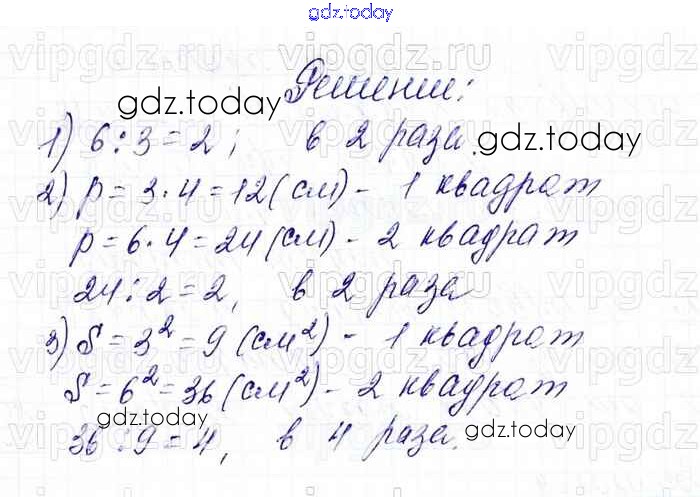 gdz.today
Решение:
1) 6 : 3 = 2 ; в 2 раза.
2) p = 3 · 4 = 12 (см) - 1 квадрат
p = 6 · 4 = 24 (см) - 2 квадрат
24 : 2 = 2, в 2 раза
3) S = 3² = 9 (см²) - 1 квадрат
S = 6² = 36 (см²) - 2 квадрат
36 : 9 = 4, в 4 раза.
gdz.today
gdz.today
gdz.today
gdz.today
vipgdz.ru
vipgdz.ru
vipgdz.ru